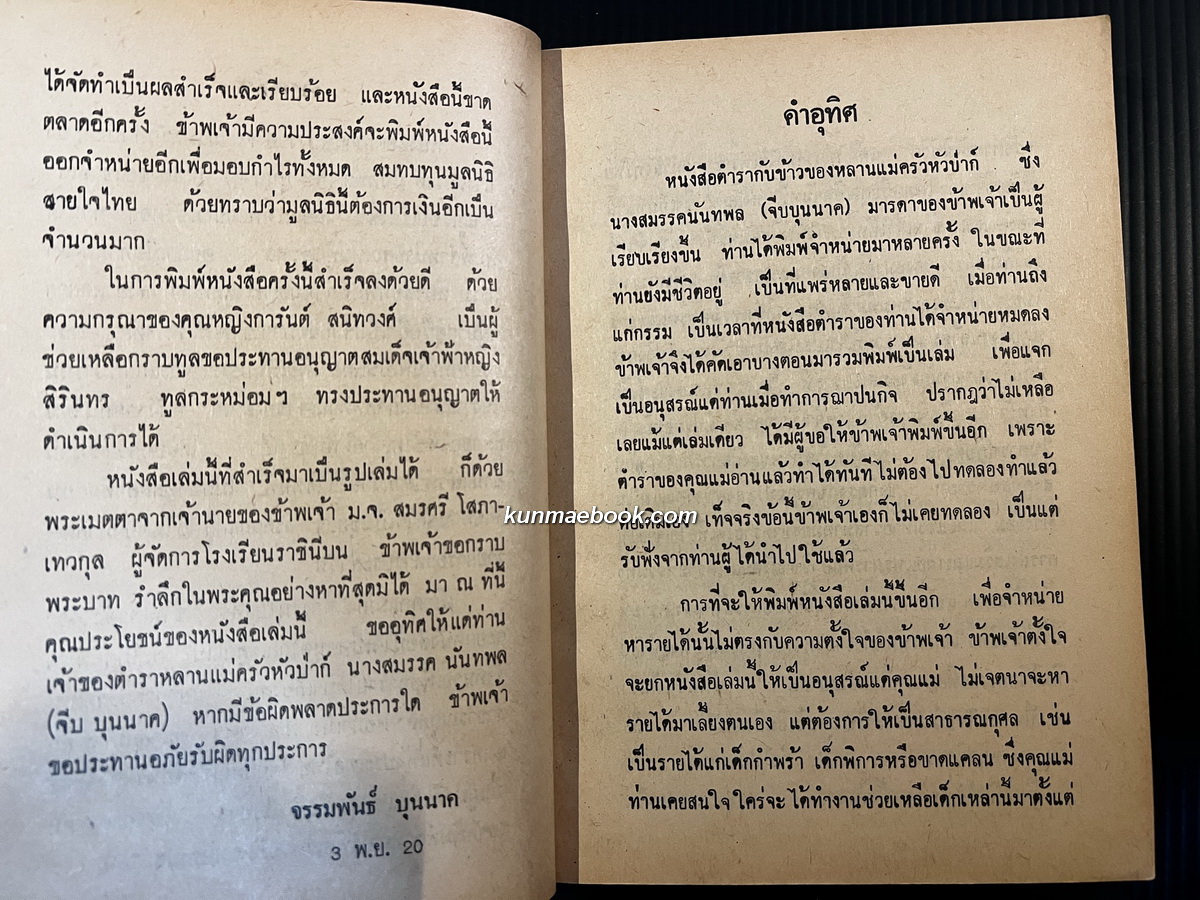 ได้จัดทำเป็นผลสำเร็จและเรียบร้อย และหนังสือนี้ขาด
ตลาดอีกครั้ง ข้าพเจ้ามีความประสงค์จะพิมพ์หนังสือนี้
ออกจำหน่ายอีกเพื่อมอบกำไรทั้งหมด สมทบทุนมูลนิธิ
สายใจไทย ด้วยทราบว่ามูลนิธินี้ต้องการเงินอีกเป็น
จำนวนมาก
ในการพิมพ์หนังสือครั้งนี้สำเร็จลงด้วยดี ด้วย
ความกรุณาของคุณหญิงการันต์ สนิทวงศ์ เป็นผู้
ช่วยเหลือกราบทูลขอประทานอนุญาตสมเด็จเจ้าฟ้าหญิง
สิรินทร ทูลกระหม่อมฯ ทรงประทานอนุญาตให้
ดำเนินการได้
หนังสือเล่มนี้ที่สำเร็จมาเป็นรูปเล่มได้ ก็ด้วย
พระเมตตาจากเจ้านายของข้าพเจ้า ม.จ. สมรศรี โสภา-
เทวกุล ผู้จัดการโรงเรียนราชินีบน ข้าพเจ้าขอกราบ
พระบาท รำลึกในพระคุณอย่างหาที่สุดมิได้ มา ณ ที่นี้
คุณประโยชน์ของหนังสือเล่มนี้ ขออุทิศให้แด่ท่าน
เจ้าของตำราหลานแม่ครัวหัวป่าก์ นางสมรรค นันทพล
(จีบ บุนนาค) หากมีข้อผิดพลาดประการใด ข้าพเจ้า
ขอประทานอภัยรับผิดทุกประการ
จรรมพันธ์ บุนนาค
3 พ.ย. 20
คำอุทิศ
หนังสือตำรากับข้าวของหลานแม่ครัวหัวป่าก์ ซึ่ง
นางสมรรคนันทพล (จีบบุนนาค) มารดาของข้าพเจ้าเป็นผู้
เรียบเรียงขึ้น ท่านได้พิมพ์จำหน่ายมาหลายครั้ง ในขณะที่
ท่านยังมีชีวิตอยู่ เป็นที่แพร่หลายและขายดี เมื่อท่านถึง
แก่กรรม เป็นเวลาที่หนังสือตำราของท่านได้จำหน่ายหมดลง
ข้าพเจ้าจึงได้คัดเอาบางตอนมารวมพิมพ์เป็นเล่ม เพื่อแจก
เป็นอนุสรณ์แด่ท่านเมื่อทำการฌาปนกิจ ปรากฎว่าไม่เหลือ
เลยแม้แต่เล่มเดียว ได้มีผู้ขอให้ข้าพเจ้าพิมพ์ขึ้นอีก เพราะ
ตำราของคุณแม่อ่านแล้วทำได้ทันที ไม่ต้องไปทดลองทำแล้ว
kunmaebook.com
เท็จจริงข้อนี้ข้าพเจ้าเองก็ไม่เคยทดลอง เป็นแต่
รับฟังจากท่านผู้ได้นำไปใช้แล้ว
การที่จะให้พิมพ์หนังสือเล่มนี้ขึ้นอีก เพื่อจำหน่าย
หารายได้นั้นไม่ตรงกับความตั้งใจของข้าพเจ้า ข้าพเจ้าตั้งใจ
จะยกหนังสือเล่มนี้ให้เป็นอนุสรณ์แด่คุณแม่ ไม่เจตนาจะหา
รายได้มาเลี้ยงตนเอง แต่ต้องการให้เป็นสาธารณกุศล เช่น
เป็นรายได้แก่เด็กกำพร้า เด็กพิการหรือขาดแคลน ซึ่งคุณแม่
ท่านเคยสนใจใคร่จะได้ทำงานช่วยเหลือเด็กเหล่านี้มาตั้งแต่